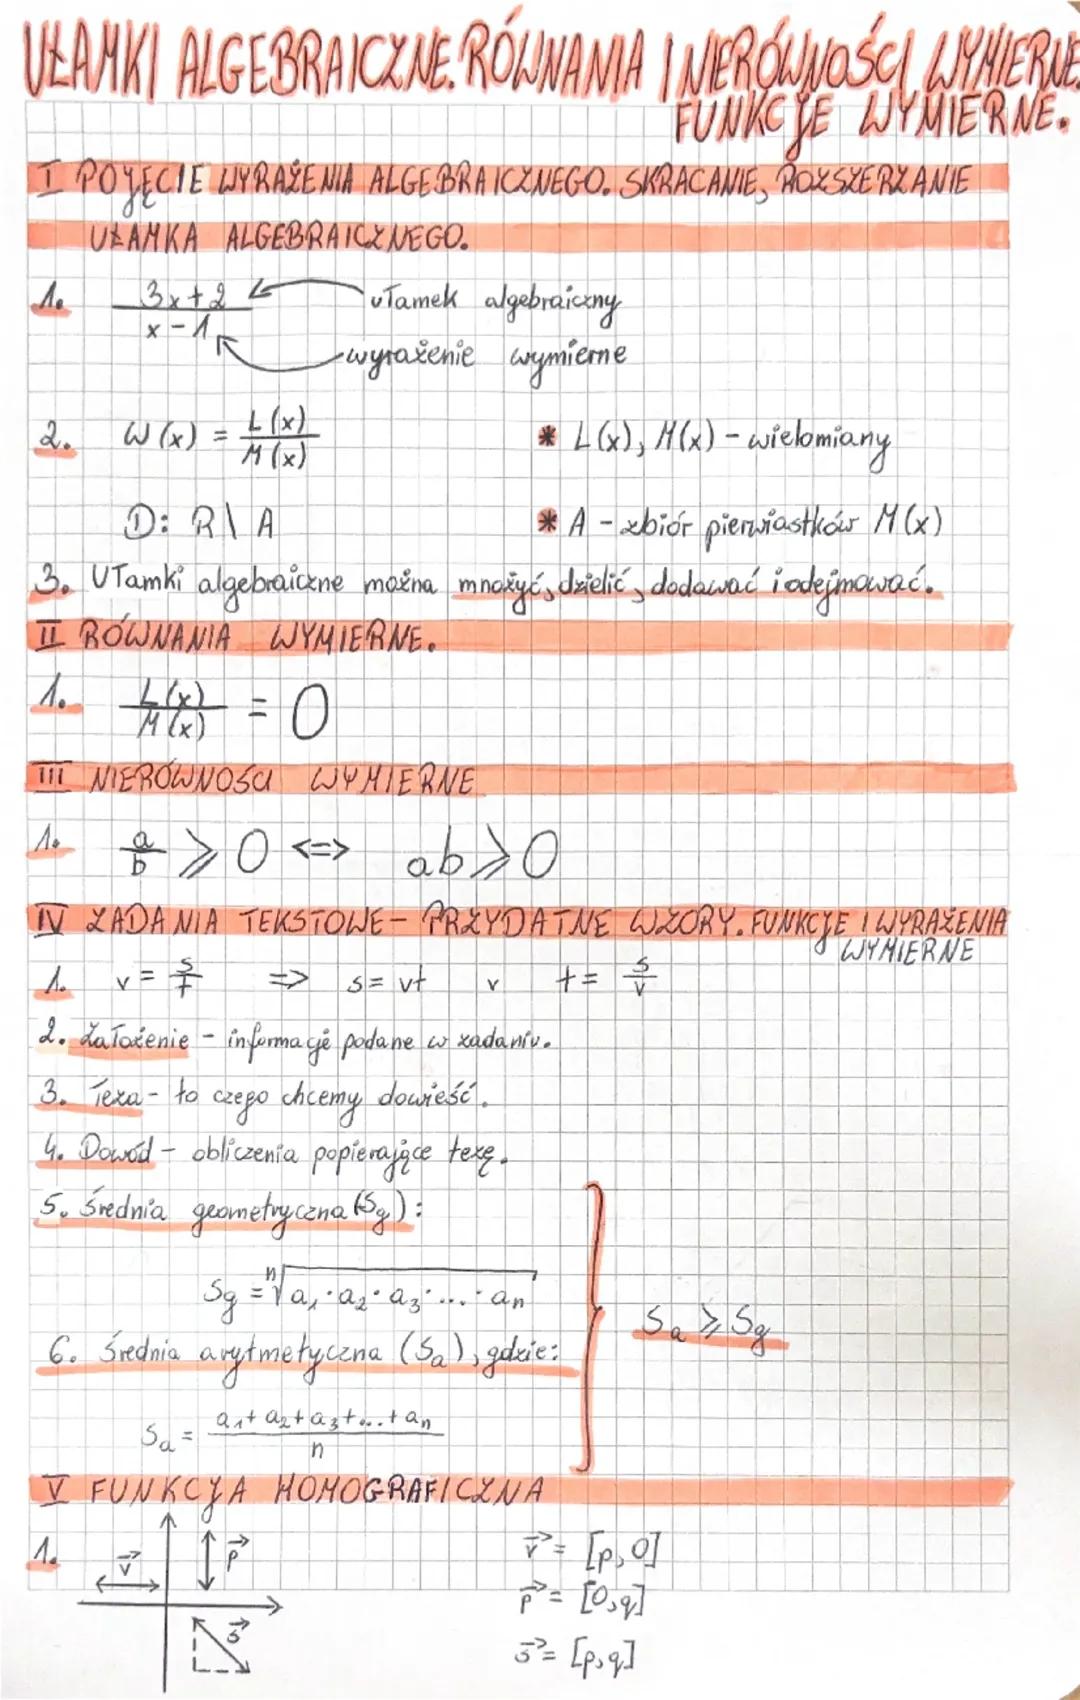 UŁAMKI ALGEBRAICZNE. RÓWNANIA I NIERÓWNOŚCI WYMIERNE.
FUNKCJE WYMIERNE.
I POJĘCIE WYRAŻENIA ALGEBRAICZNEGO. SKRACANIE, ROZSZERZANIE
UŁAMKA ALGEBRAICZNEGO.
1. (3x+2)/(x-1) ułamek algebraiczny
wyrażenie wymierne
2. W(x) = L(x)/M(x) * L(x), M(x) - wielomiany
D: R \ A * A - zbiór pierwiastków M(x)
3. Ułamki algebraiczne można mnożyć, dzielić, dodawać i odejmować.
II RÓWNANIA WYMIERNE.
1. L(x)/M(x) = 0
III NIERÓWNOŚCI WYMIERNE
1. a/b ⩾ 0 <=> ab ⩾ 0
IV ZADANIA TEKSTOWE - PRZYDATNE WZORY. FUNKCJE I WYRAŻENIA
WYMIERNE
1. v = s/t => s = vt v t = s/v
2. Założenie - informacje podane w zadaniu.
3. Teza - to czego chcemy dowieść.
4. Dowód - obliczenia popierające tezę.
5. Średnia geometryczna (Sg):
Sg = ⁿ√(a₁·a₂·a₃·...·aₙ)
Sa ⩾ Sg
6. Średnia arytmetyczna (Sa), gdzie:
Sa = (a₁+a₂+a₃+...+aₙ)/n
V FUNKCJA HOMOGRAFICZNA
1. v⃗ p⃗ v⃗ = [p,0]
p⃗ = [0,q]
s⃗ s⃗ = [p,q]